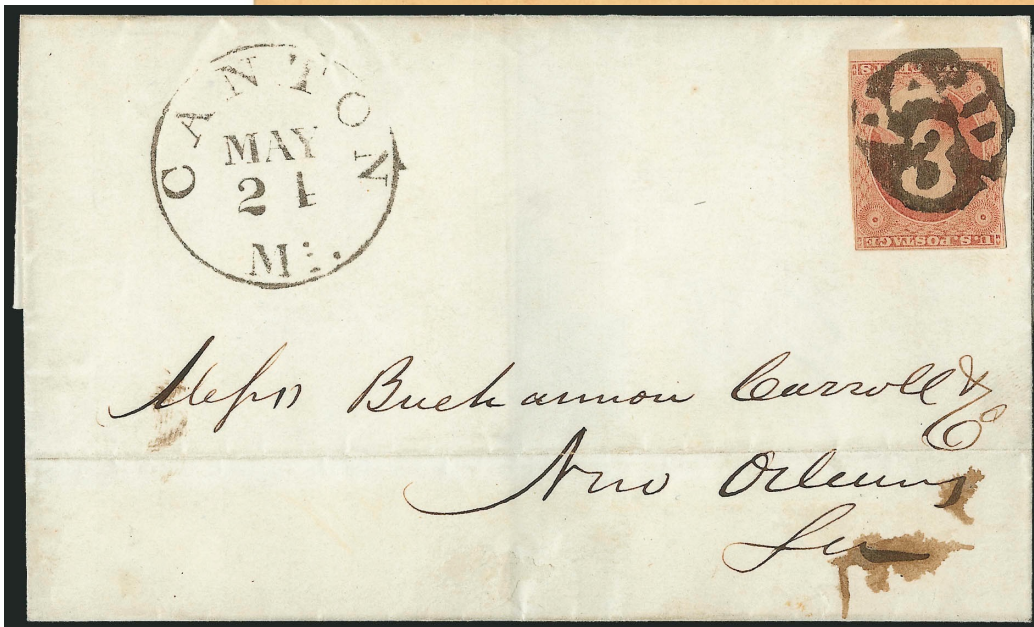 CANTON
MAY
21
Mi.
PAID
3
U.S. POSTAGE
Messrs Buchannon Carroll & Co
New Orleans
La